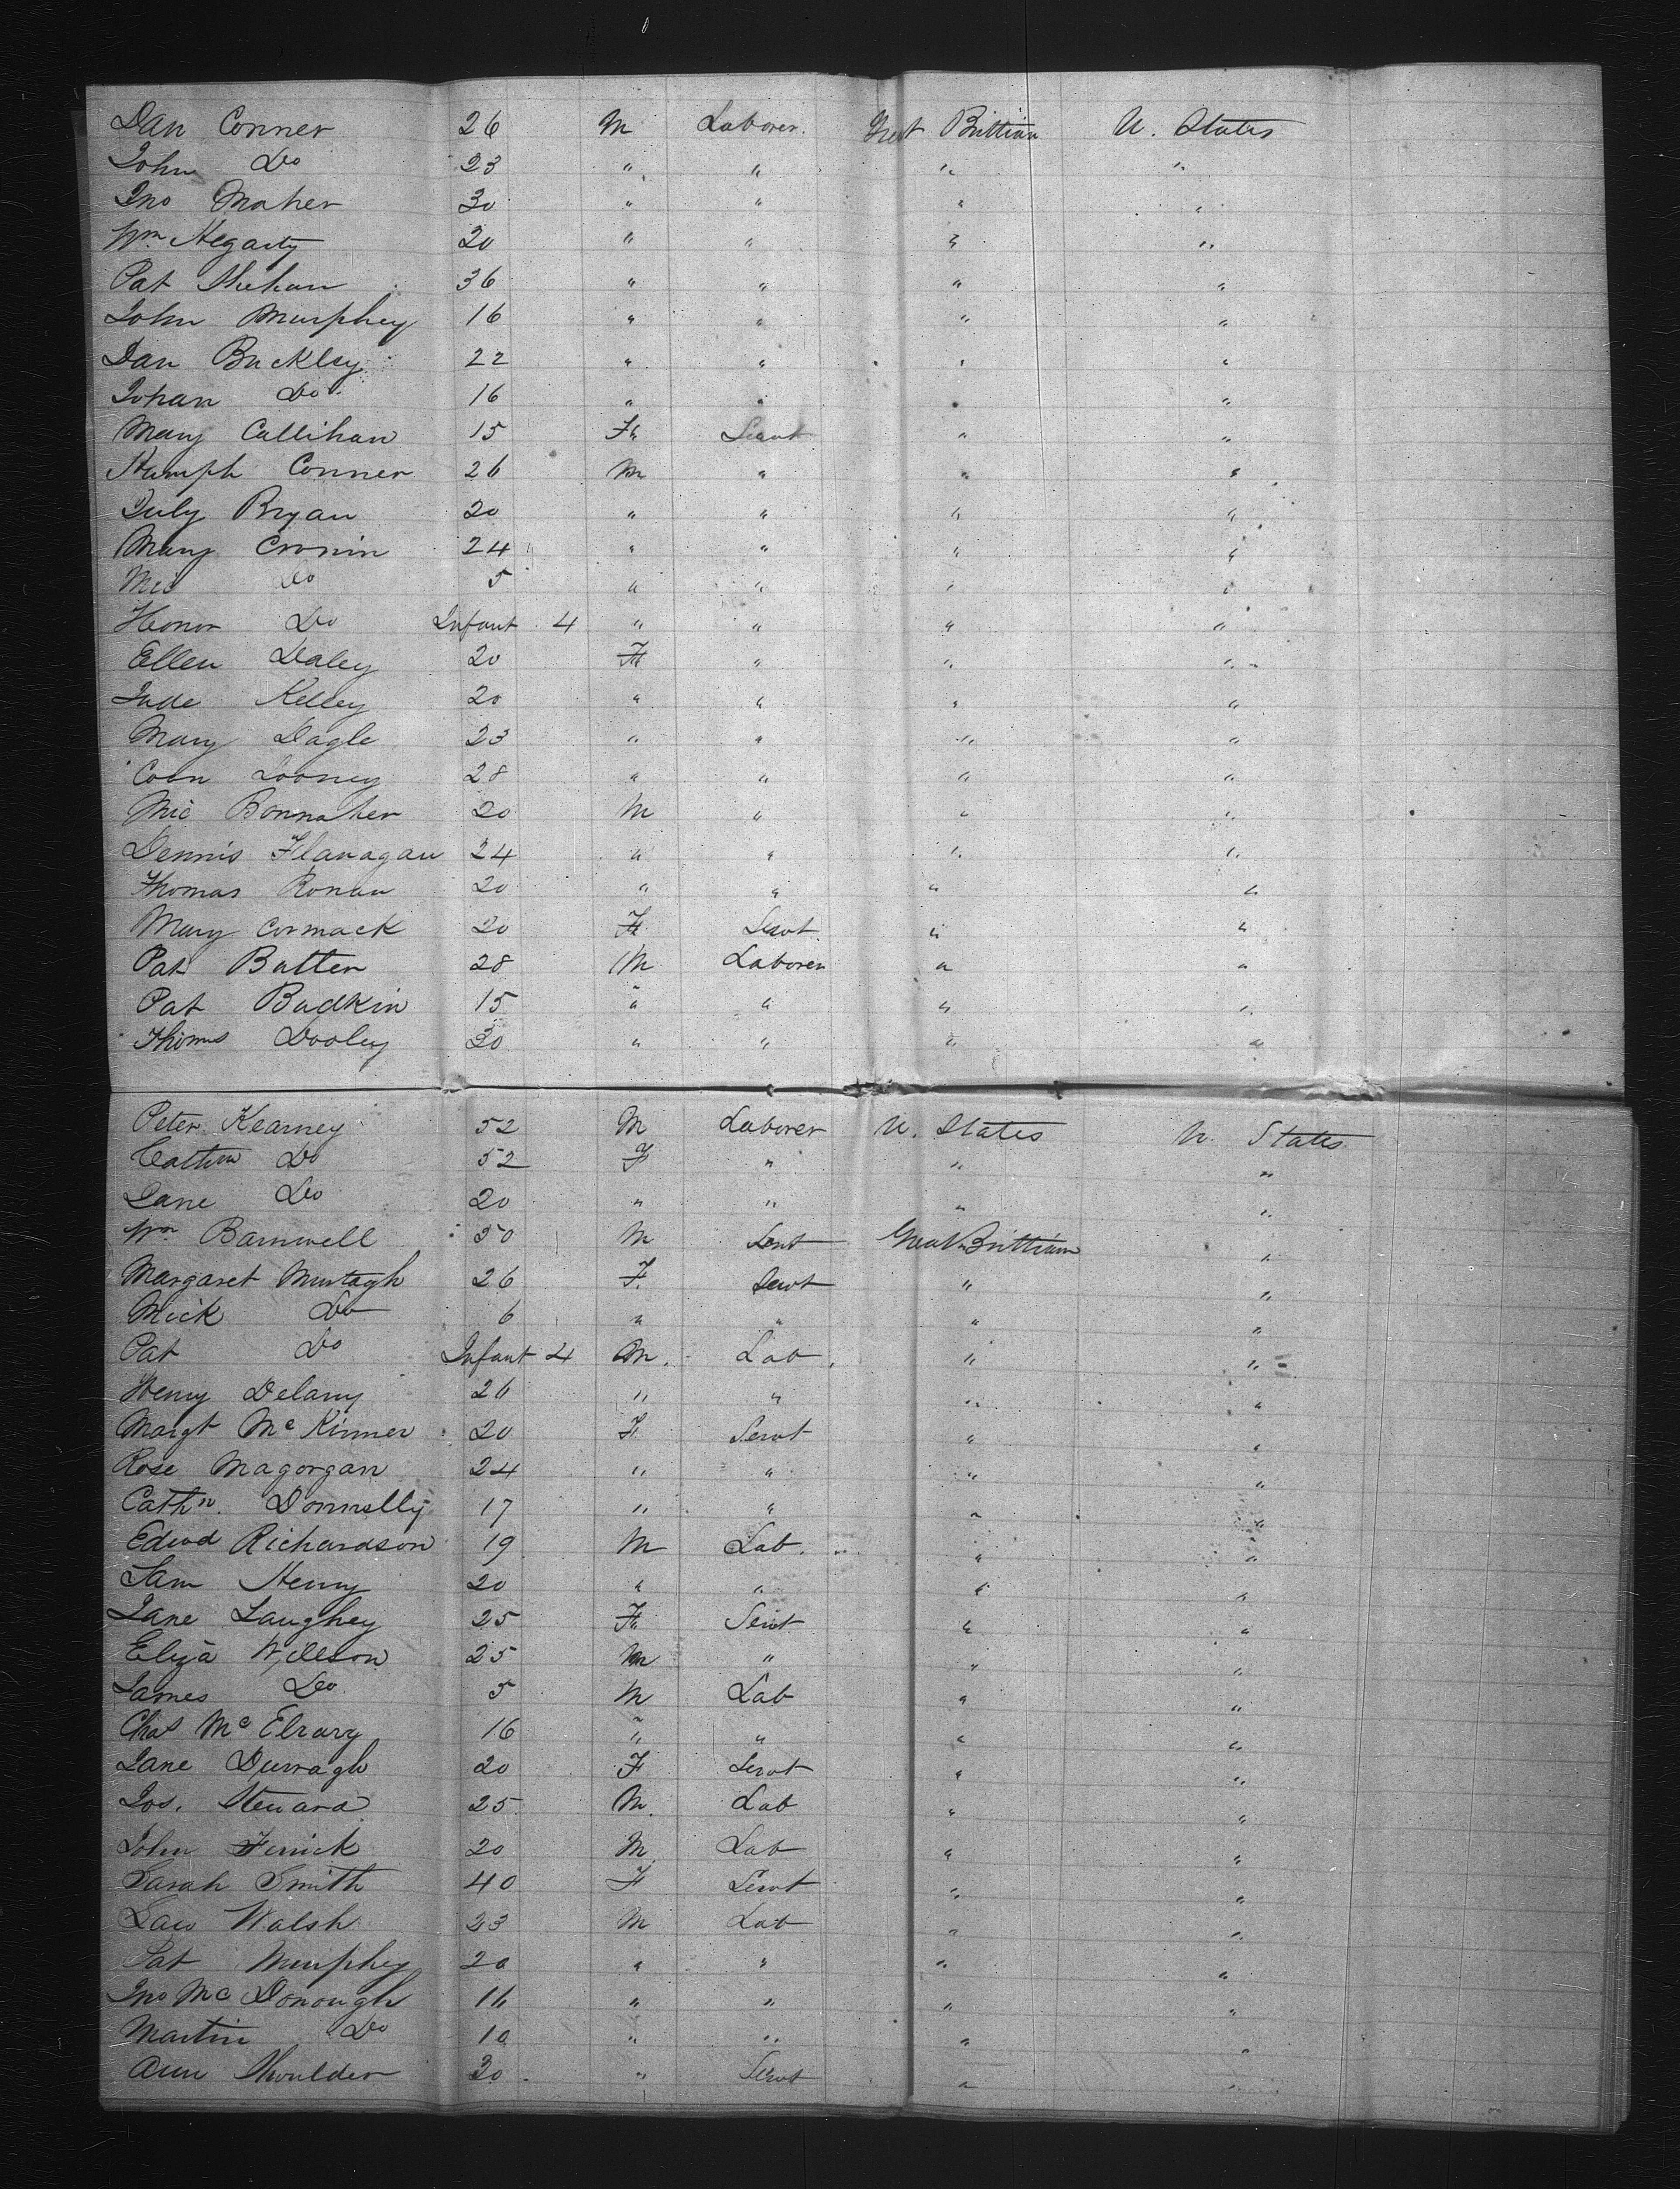 Dan Conner 26 M Laborer. Great Brittian U. States
John Do 23 " " " "
Jno Maher 30 " " " "
Wm Hegarty 20 " " " "
Pat Shehan 36 " " " "
John Murphey 16 " " " "
Dan Buckley 22 " " " "
Johan Do 16 " " " "
Mary Callihan 15 F Servt " "
Humph Conner 26 M " " "
July Bryan 20 " " " "
Mary Cronin 24 " " " "
Mic Do 5 " " " "
Honor Do Infant 4 " " " "
Ellen Daley 20 F " " "
Jude Kelley 20 " " " "
Mary Dagle 23 " " " "
Coon Looney 28 " " " "
Mic Bonnaher 20 M " " "
Dennis Flanagan 24 " " " "
Thomas Ronan 20 " " " "
Mary Cormack 20 F Servt " "
Pat Butter 28 M Laborer " "
Pat Budkin 15 " " " "
Thomas Dooley 30 " " " "
Peter Kearney 52 M Laborer U. States U. States
Do 52 F " " "
Jane Do 20 " " " "
Wm Barnwell 50 M Servt Great Brittian "
Margaret Murtagh 26 F. Servt " "
Mick Do 6 " " " "
Pat Do Infant 4 M. Lab. " "
Henry Delany 26 " " " "
Margt Mc Kinner 20 F Servt " "
Rose Magorgan 24 " " " "
Cathn. Donnelly 17 " " " "
Edwd Richardson 19 M Lab. " "
Sam Henry 20 " " " "
Jane Laughey 25 F Servt " "
Eliza Willson 25 M " " "
James Do 5 M Lab " "
Chas Mc Elrary 16 " " " "
Jane Durragh 20 F Servt " "
Jos. Steward 25 M. Lab " "
John Finick 20 M Lab " "
Sarah Smith 40 F Servt " "
Law Walsh 23 M Lab " "
Pat Murphey 20 " " " "
Jno Mc Donough 16 " " " "
Martin Do 10 " " " "
Ann Shoulder 30 " Servt " "